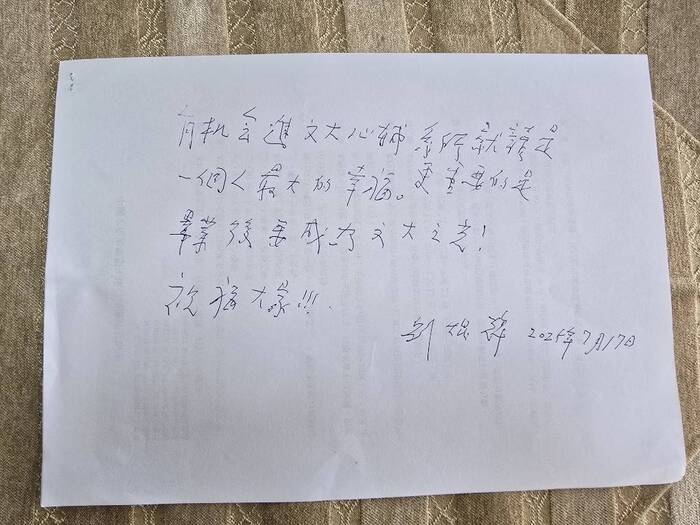 有机会進文大心輔系所就讀是
一個人最大的幸福。更重要的是
畢業後要成为文大之光!
祝福大家!!!
劉焜輝 2025年7月17日